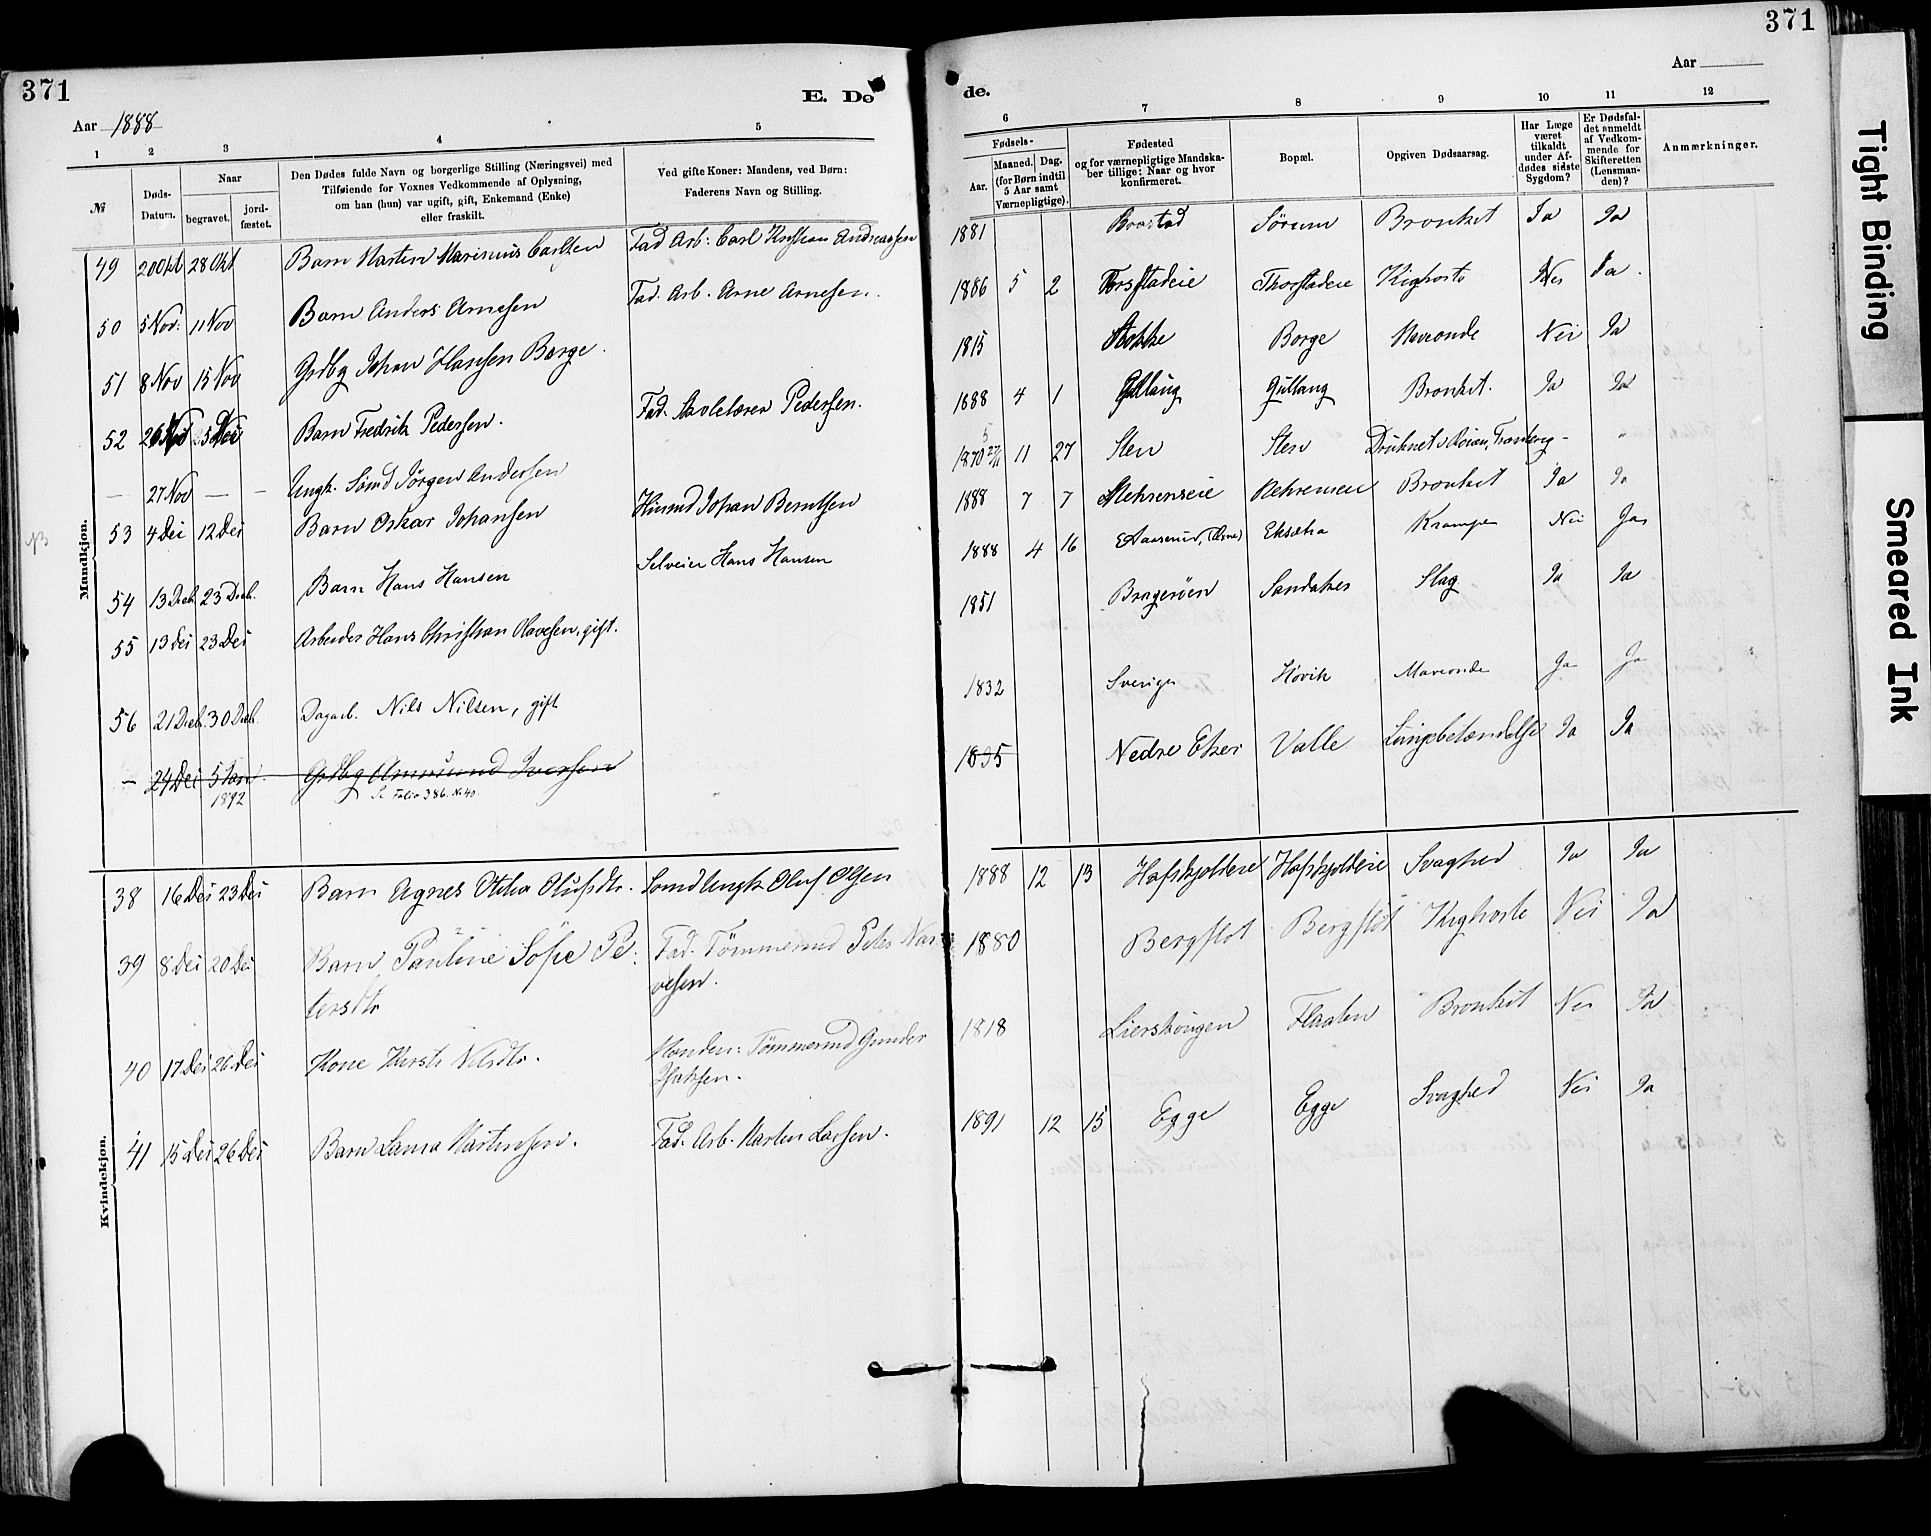 371
E. Dø
Aar 1888
1 2 3 4 5
№
Døds-
Datum.
Naar
begravet.
jord-
fæstet.
Den Dødes fulde Navn og borgerlige Stilling (Næringsvei) med
Tilføiende for Voxnes Vedkommende af Oplysning,
om han (hun) var ugift, gift, Enkemand (Enke)
eller fraskilt.
Ved gifte Koner: Mandens, ved Børn:
Faderens Navn og Stilling.
Mandkjøn.
49 20 Okt 28 Okt Barn Martin Marinius Carlsen Fad Arb: Carl Kristian Andreassen
50 5 Nov: 11 Nov Barn Anders Arnesen Fad. Arb. Arne Arnesen.
51 8 Nov 15 Nov Grdbg Johan Hansen Borge.
52 26 Nov 5 Dec Barn Fredrik Pedersen. Fad. Skolelærer Pedersen.
— 27 Nov — — Ungk. Sømd Jørgen Andersen
53 4 Dec 12 Dec Barn Oskar Johansen Husmd Johan Berntsen
54 13 Decb. 23 Decb. Barn Hans Hansen Selveier Hans Hansen
55 13 Dec 23 Dec Arbeider Hans Christian Olavesen, gift.
56 21 Decb. 30 Decb. Dagarb. Nils Nilsen, gift
— 24 Dec 5 Jan Grdbg Ammund Iversen
1892 Se Folio 386. No 40.
Kvindekjøn.
38 16 Dec 23 Dec Barn Agnes Otilia Olufsdtr. Sømd Ungk Oluf Olsen
39 8 Dec 20 Dec Barn Pauline Sofie Pe- Fad. Tømmermd Peter Nar-
tersdtr vesen.
40 17 Dec 26 Dec Kone Kirsti Nilsdtr. Manden: Tømmermd Gunder
Isaksen.
41 15 Dec 26 Dec Barn Laura Martinsen. Fad. Arb. Martin Larsen.
371
de.
Aar
6 7 8 9 10 11 12
Fødsels-
Aar.
Maaned. Dag.
(for Børn indtil
5 Aar samt
Værnepligtige).
Fødested
og for værnepligtige Mandska-
ber tillige: Naar og hvor
konfirmeret.
Bopæl.
Opgiven Dødsaarsag.
Har Læge
været
tilkaldt
under Af-
dødes sidste
Sygdom?
Er Dødsfal-
det anmeldt
af Vedkom-
mende for
Skifteretten
(Lensman-
den)?
Anmærkninger.
1881 Sørum Bronkit Ja Ja
1886 5 2 Thorstadeie Kighoste Nei Ja
1815 Borge Maveonde Nei Ja
1888 4 1 Gullaug Gullaug Bronkit. Ja Ja
1870 27/11 11 27 Sten Sten Druknet
1888 7 7 Bronkit Ja Ja
1888 4 16 Eksætra Krampe Nei Ja
1851 Bragerøen Sandaker Slag Ja Ja
1832 Sverige Høvik Maveonde Ja Ja
1835 Nedre Eker Valle Lungebetændelse Ja Ja
1888 12 13 Hafskjoldeie Hafskjoldeie Svaghed Ja Ja
1880 Bergflot Bergflot Kighoste Nei Ja
1818 Lierskougen Flaaten Bronkit Nei Ja
1891 12 15 Egge Egge Svaghed Nei Ja
Tight Binding
Smeared Ink